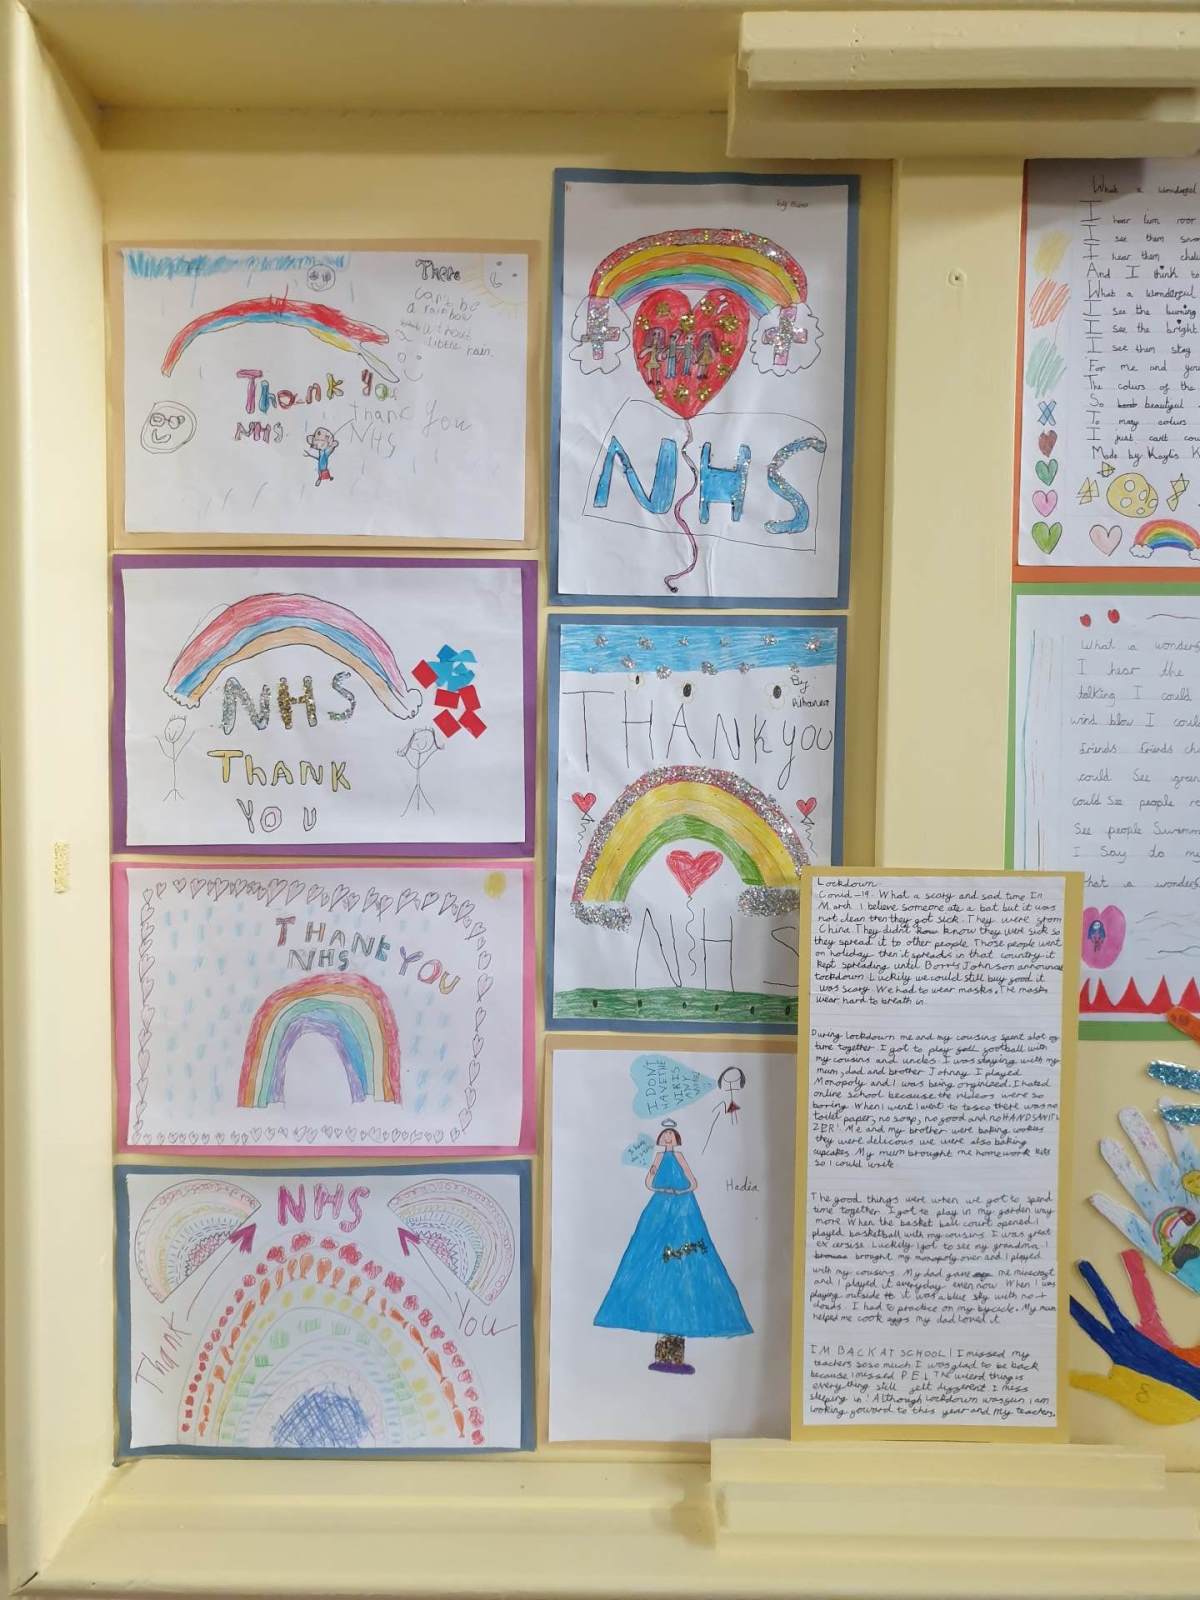 There
can't be
a rainbow
without
little rain.
Thank you
NHS
thank you
NHS
NHS
THANK
YOU
THANK YOU
NHS
NHS
Thank
You
NHS
THANK YOU
By
Rihanna
NHS
I DON'T
HAVE THE
VIRIS
ANY
Hadia
Lockdown
Covid-19. What a scary and sad time. In
March I believe someone ate a bat but it was
not clean then they got sick. They were from
China. They didnt know they were sick so
they spread it to other people. Those people went
on holiday then it spreads in that country it
kept spreading until Borris Johnson announce
lockdown. Luckily we could still buy good it
was scary. We had to wear masks. The masks
wear hard to breath in.
During lockdown me and my cousins spent alot of
time together. I got to play football with
my cousins and uncles. I was staying with my
mum, dad and brother Johnny. I played
Monopoly and I was being orginized. I hated
online school because the videos were so
borring. When I went to tesco there was no
toilet paper, no soap, no good and no HANDSANITI
ZER! Me and my brother were baking cookies
they were delicous we were also baking
cupcakes. My mum brought me homework kits
so I could write
The good things were when we got to spend
time together. I got to play in my garden way
more. When the basket ball court opened I
played basketball with my cousins. I was great
excersise. Luckily I got to see my grandma. I
brought my monopoly over and I played
with my cousins. My dad gave me minecraft
and I played it everyday even now. When I was
playing outside it was a blue sky with no
clouds. I had to practice on my bycicle. My mum
helped me cook eggs my dad loved it.
IM BACK AT SCHOOL! I missed my
teachers soso much I was glad to be back
because I missed P.E. The wierd thing is
everything still gelt diggerent. I miss
sleeping in! Although lockdown was gun I am
looking goward to this year and my teachers.
What a wonderful
I hear lion roar
I see them
I hear them
And I think to
What a wonderful
I see the
I see the bright
I see them stay
For me and you
The colurs of the
So beautiful
To many colurs
I just cant
Made by Kaylis K
What a wonders
I hear the
talking I could
wind blow I coul
friends friends
could see green
could see people
See people Swimm
I Say to my
that a wonder